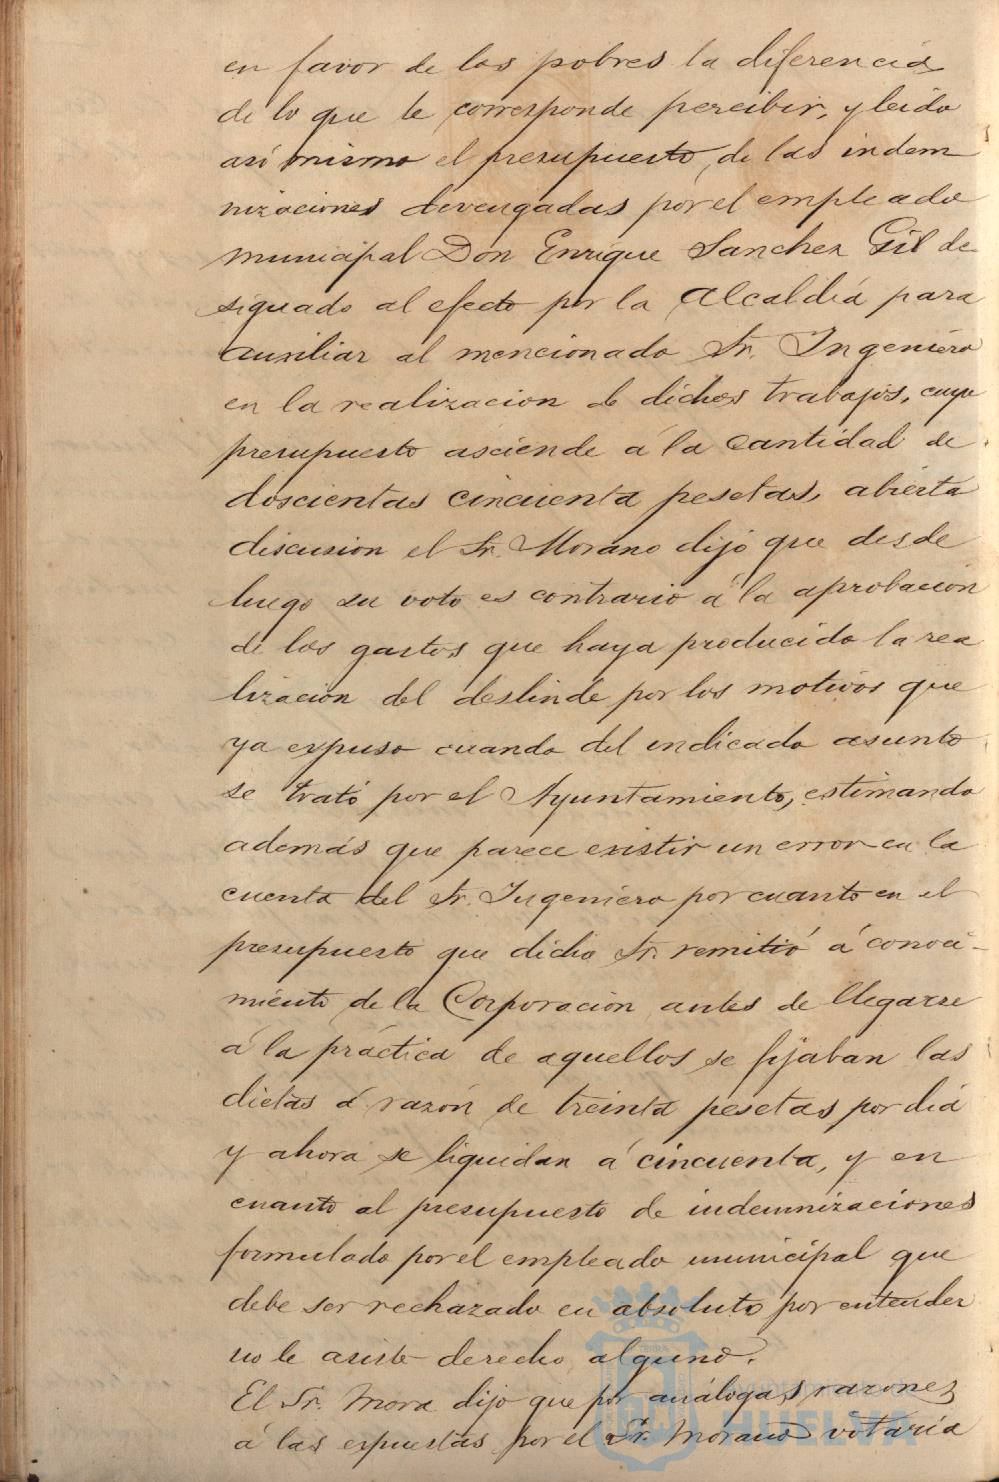 en favor de los pobres la diferencia
de lo que le corresponde percibir, y leido
asi mismo el presupuesto, de las indem
nizaciones devengadas por el empleado
municipal Don Enrique Sanchez Gil de
siguado al efecto por la Alcaldiá para
auxiliar al mencionado Sr. Ingeniero
en la realizacion de dichos trabajos, cuyo
presupuesto asciende á la cantidad de
doscientas cincuenta pesetas, abierta
discusion el Sr. Morano dijo que desde
luego su voto es contrario á la aprobacion
de los gastos que haya producido la rea
lizacion del deslinde por los motivos que
ya expuso cuando del indicado asunto
se trató por el Ayuntamiento, estimando
además que parece existir un error en la
cuenta del Sr. Ingeniero por cuanto en el
presupuesto que dicho Sr. remitió á conoci-
miento de la Corporacion antes de llegarse
á la práctica de aquellos se fijaban las
dietas á razón de treinta pesetas por dia
y ahora se liquidan á cincuenta, y en
cuanto al presupuesto de indemnizaciones
formulado por el empleado municipal que
debe ser rechazado en absoluto por entender
no le asiste derecho alguno.
El Sr. Mora dijo que por análogas razones
á las expuestas por el Sr. Morano votaria
HUELVA